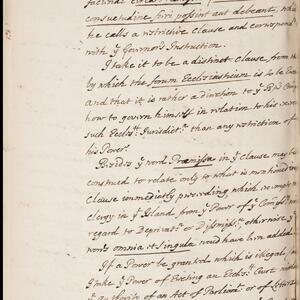 consuetudine fieri possint aut debeant, wh
he calls a restrictive Clause and correspond
with yͤ Governors Instruction.
I take it to be a distinct Clause from
by which the forum Ecclesiasticum is to be
and that it is rather a direction to yͤ
how to govern himself in relation to his
such Eccles. Jurisdict. than any restriction of
his Power.
Besides yͤ word Præmissa in yͤ Clause may be
construed to relate only to what is mentioned
Clause immediately preceeding which
Clergy in yͤ Island, from yͤ Power of
regard to Deprivat. or Dismiss. otherwise yͤ
words omnia et singula would have been added
If a Power be granted which is illegal,
I take yͤ Power of Erecting an Eccles. Court
yͤ Authority of an Act of Parliam. or of